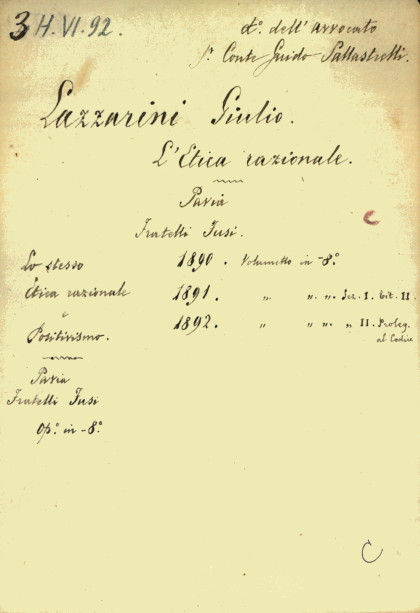 3 H. VI. 92.
d.º dell' avvocato
S.r Conte Guido Pallastrelli.
Lazzarini Giulio.
L'Etica razionale.
Pavia
Fratelli Fusi.
1890. Volumetto in -8º.
1891. " " " Sez. I. Tit. II.
1892. " " " " II. Proleg.
al Codice
Lo stesso
Etica razionale
e
Positivismo.
Pavia
Fratelli Fusi
Op.º in -8º.
C
C